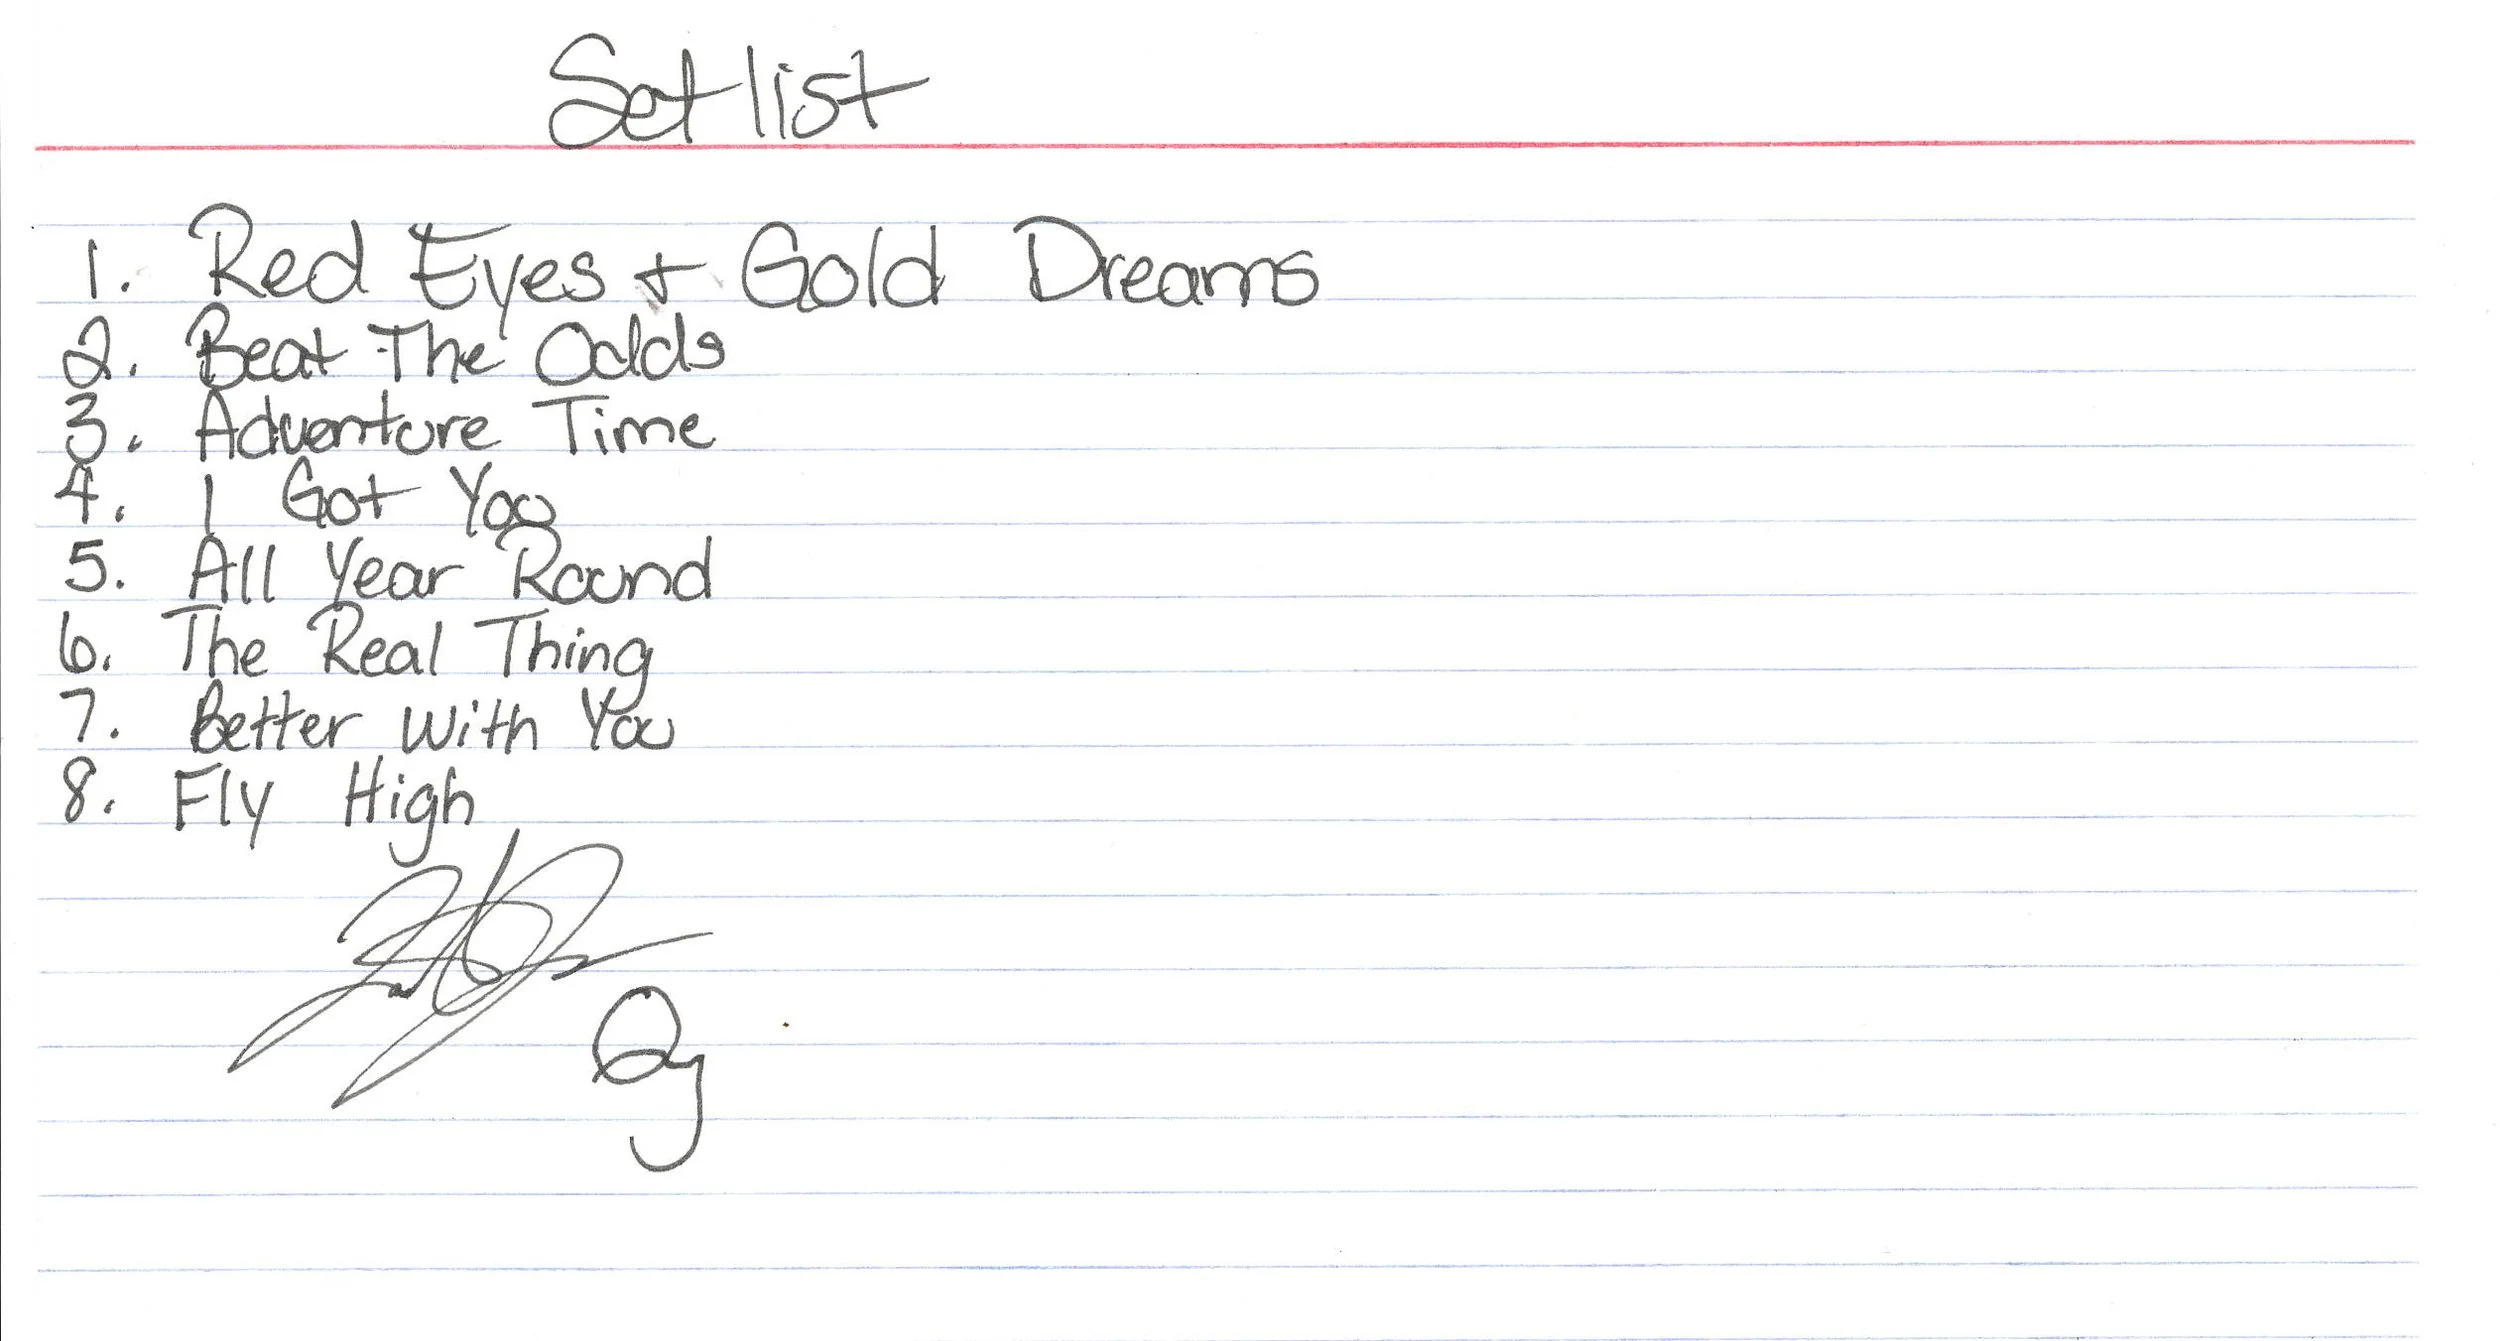 Set list
1. Red Eyes + Gold Dreams
2. Beat The Odds
3. Adventure Time
4. I Got You
5. All Year Round
6. The Real Thing
7. Better With You
8. Fly High